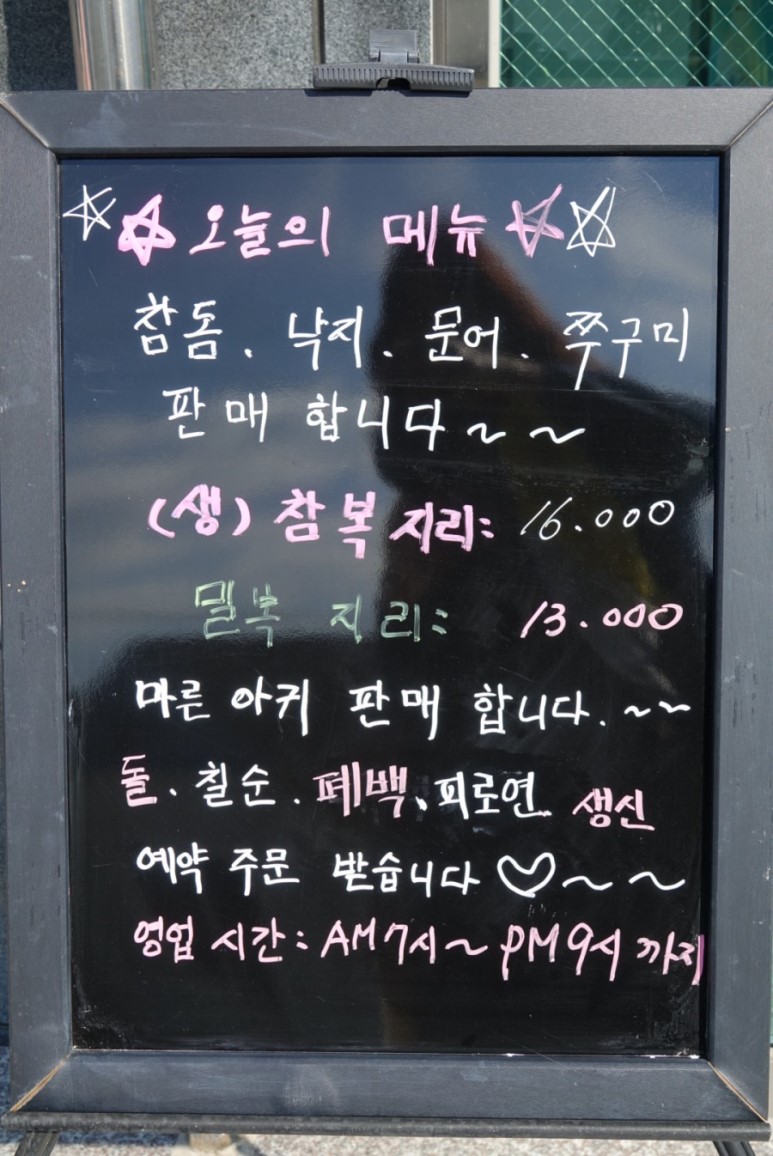 오늘의 메뉴
참돔. 낙지. 문어. 쭈구미
판매 합니다~~
(생) 참복 지리: 16.000
밀복 지리: 13.000
마른 아귀 판매 합니다.~~
돌. 칠순. 페백、피로연 생신
예약 주문 받습니다♡~~
영업 시간: AM 7시~PM 9시 까지